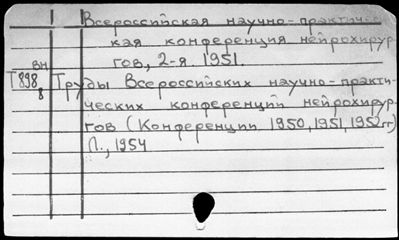 Всероссийская научно-практичес-
кая конференция нейрохирур-
гов, 2-я. 1951.
вн
Т898 Труды Всероссийских научно-практи-
8
ческих конференций нейрохирур-
гов (Конференции 1950, 1951, 1952 гг)
Л., 1954